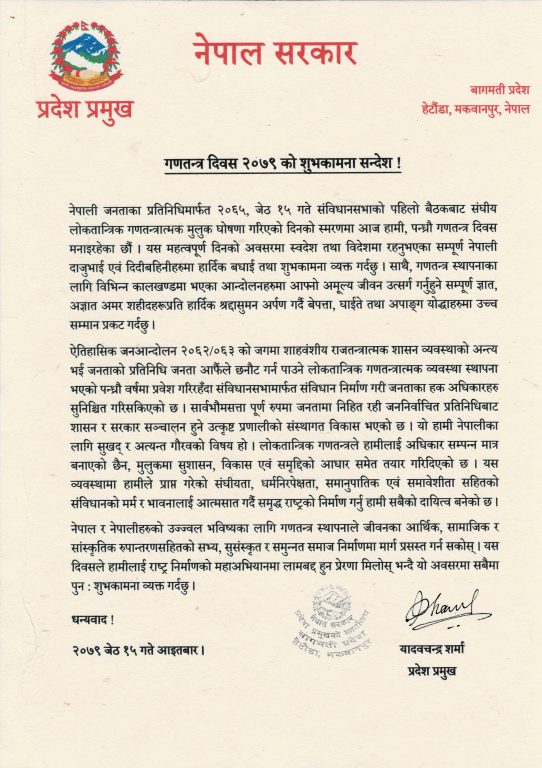 नेपाल सरकार
प्रदेश प्रमुख
बागमती प्रदेश
हेटौंडा, मकवानपुर, नेपाल
गणतन्त्र दिवस २०७९ को शुभकामना सन्देश !
नेपाली जनताका प्रतिनिधिमार्फत २०६५, जेठ १५ गते संविधानसभाको पहिलो बैठकबाट संघीय
लोकतान्त्रिक गणतन्त्रात्मक मुलुक घोषणा गरिएको दिनको स्मरणमा आज हामी, पन्ध्रौ गणतन्त्र दिवस
मनाइरहेका छौं । यस महत्वपूर्ण दिनको अवसरमा स्वदेश तथा विदेशमा रहनुभएका सम्पूर्ण नेपाली
दाजुभाई एवं दिदीबहिनीहरुमा हार्दिक बधाई तथा शुभकामना व्यक्त गर्दछु । साथै, गणतन्त्र स्थापनाका
लागि विभिन्न कालखण्डमा भएका आन्दोलनहरुमा आफ्नो अमूल्य जीवन उत्सर्ग गर्नुहुने सम्पूर्ण ज्ञात,
अज्ञात अमर शहीदहरूप्रति हार्दिक श्रद्दासुमन अर्पण गर्दै बेपत्ता, घाईते तथा अपाङ्ग योद्धाहरुमा उच्च
सम्मान प्रकट गर्दछु ।
ऐतिहासिक जनआन्दोलन २०६२/०६३ को जगमा शाहवंशीय राजतन्त्रात्मक शासन व्यवस्थाको अन्त्य
भई जनताको प्रतिनिधि जनता आफैंले छनौट गर्न पाउने लोकतान्त्रिक गणतन्त्रात्मक व्यवस्था स्थापना
भएको पन्ध्रौ वर्षमा प्रवेश गरिरहँदा संविधानसभामार्फत संविधान निर्माण गरी जनताका हक अधिकारहरु
सुनिश्चित गरिसकिएको छ । सार्वभौमसत्ता पूर्ण रुपमा जनतामा निहित रही जननिर्वाचित प्रतिनिधिबाट
शासन र सरकार सञ्चालन हुने उत्कृष्ट प्रणालीको संस्थागत विकास भएको छ । यो हामी नेपालीका
लागि सुखद् र अत्यन्त गौरवको विषय हो । लोकतान्त्रिक गणतन्त्रले हामीलाई अधिकार सम्पन्न मात्र
बनाएको छैन, मुलुकमा सुशासन, विकास एवं समृद्दिको आधार समेत तयार गरिदिएको छ । यस
व्यवस्थामा हामीले प्राप्त गरेको संघीयता, धर्मनिरपेक्षता, समानुपातिक एवं समावेशीता सहितको
संविधानको मर्म र भावनालाई आत्मसात गर्दै समृद्ध राष्ट्रको निर्माण गर्नु हामी सबैको दायित्व बनेको छ ।
नेपाल र नेपालीहरुको उज्ज्वल भविष्यका लागि गणतन्त्र स्थापनाले जीवनका आर्थिक, सामाजिक र
सांस्कृतिक रुपान्तरणसहितको सभ्य, सुसंस्कृत र समुन्नत समाज निर्माणमा मार्ग प्रसस्त गर्न सकोस् । यस
दिवसले हामीलाई राष्ट्र निर्माणको महाअभियानमा लामबद्द हुन प्रेरणा मिलोस् भन्दै यो अवसरमा सबैमा
पुन : शुभकामना व्यक्त गर्दछु ।
धन्यवाद !
२०७९ जेठ १५ गते आइतबार ।
नेपाल सरकार
प्रदेश प्रमुखको कार्यालय
बागमती प्रदेश
हेटौंडा, मकवानपुर
यादवचन्द्र शर्मा
प्रदेश प्रमुख